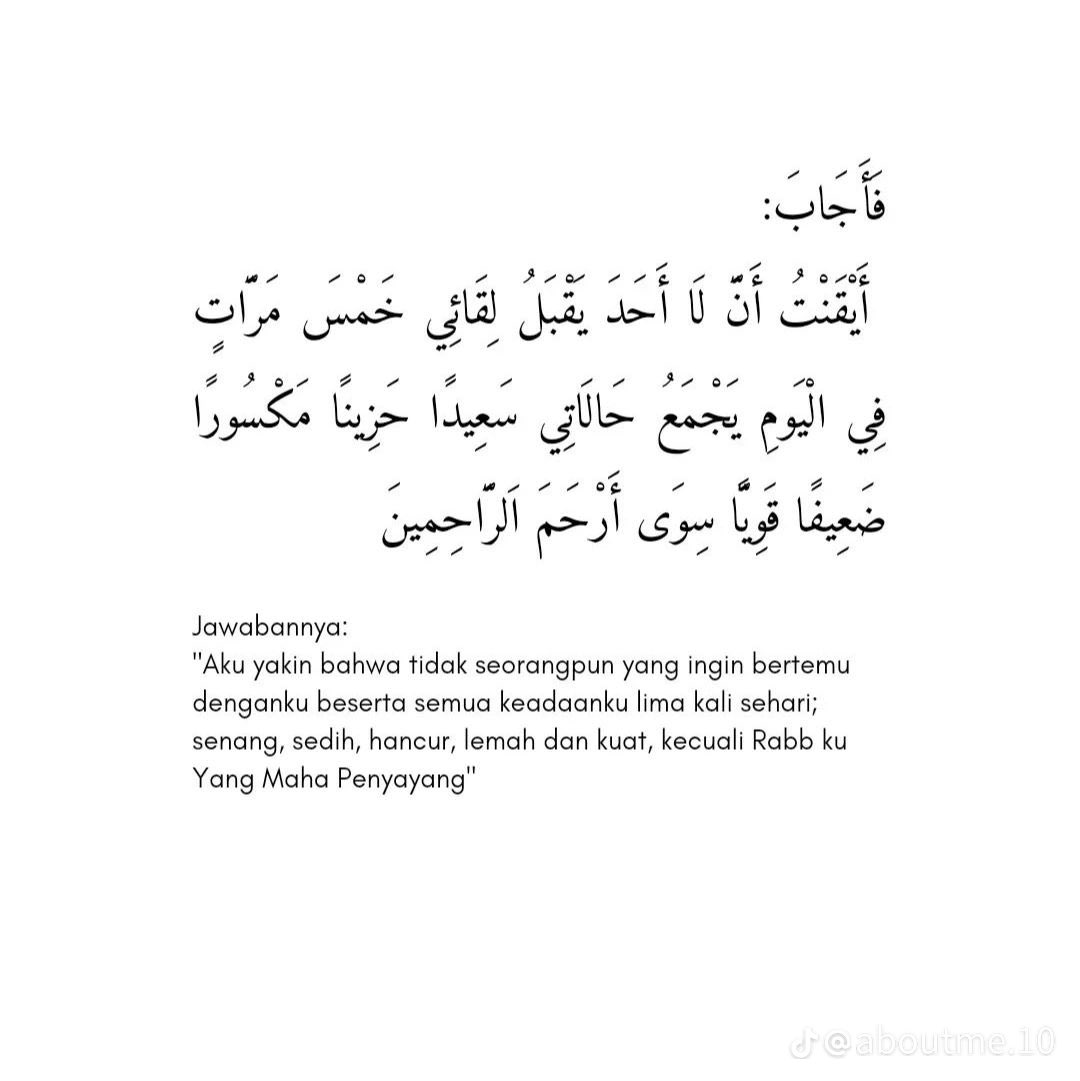 فَأَجَابَ:
أَيْقَنْتُ أَنَّ لَا أَحَدَ يَقْبَلُ لِقَائِي خَمْسَ مَرَّاتٍ
فِي الْيَومِ يَجْمَعُ حَالَاتِي سَعِيدًا حَزِينًا مَكْسُورًا
ضَعِيفًا قَوِيًّا سِوَى أَرْحَمَ اَلرَّاحِمِينَ
Jawabannya:
"Aku yakin bahwa tidak seorangpun yang ingin bertemu
denganku beserta semua keadaanku lima kali sehari;
senang, sedih, hancur, lemah dan kuat, kecuali Rabb ku
Yang Maha Penyayang"
@aboutme.10